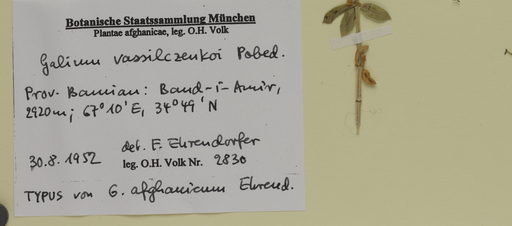 Botanische Staatssammlung München
Plantae afghanicae, leg. O.H. Volk
Galium vassilczenkoi Pobed.
Prov. Bamian: Band-i-Amir,
2920m; 67°10'E, 34°49'N
det. F. Ehrendorfer
30.8.1952 leg. O.H. Volk Nr. 2830
TYPUS von G. afghanicum Ehrend.